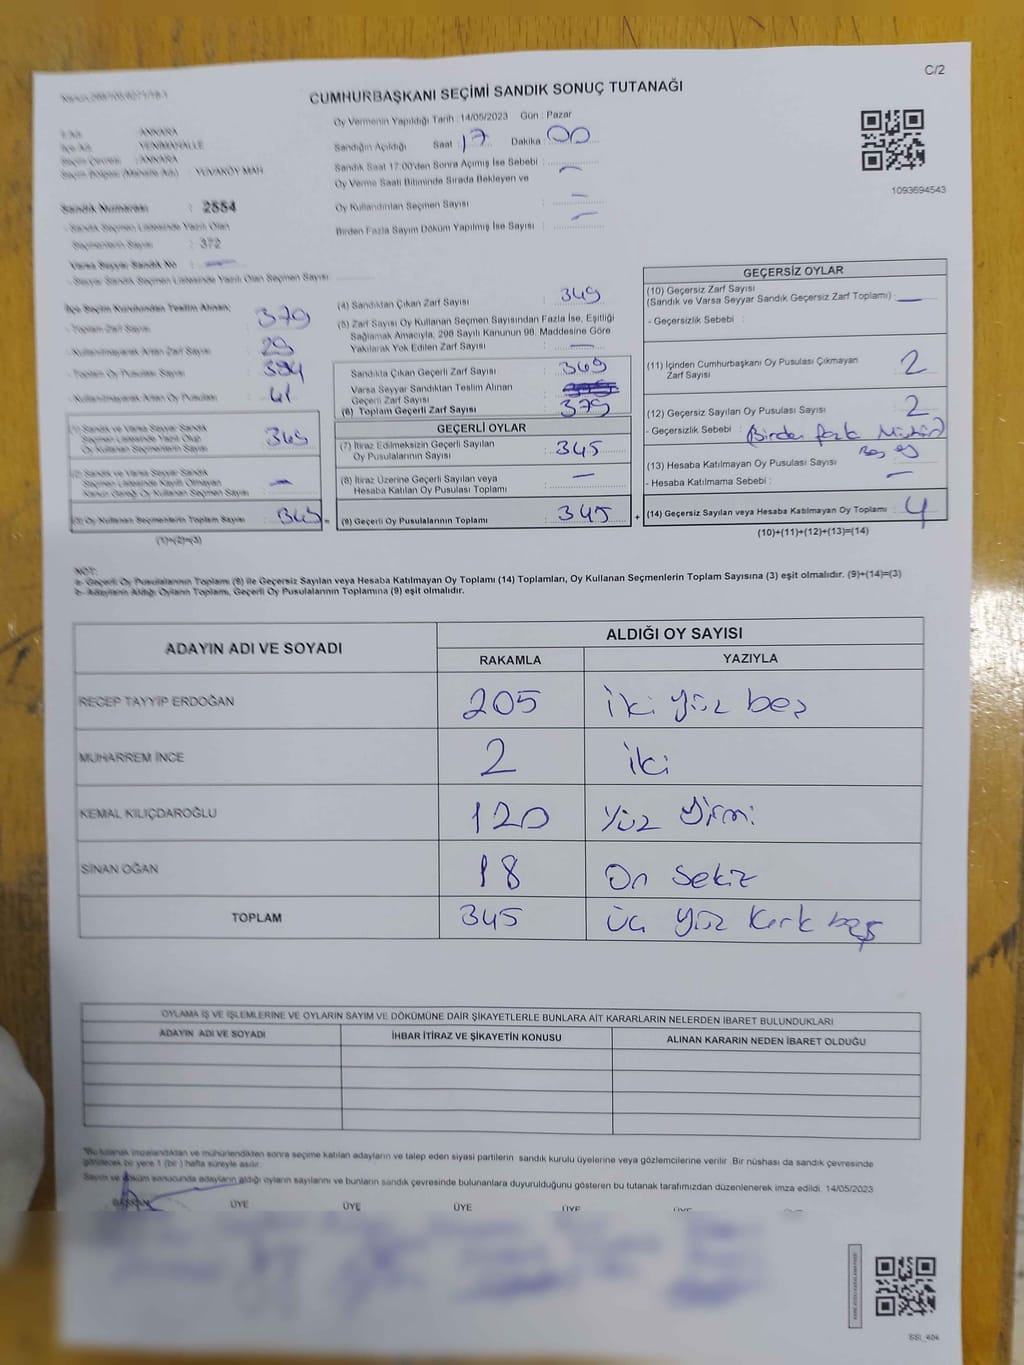 C/2
CUMHURBAŞKANI SEÇİMİ SANDIK SONUÇ TUTANAĞI
Oy Vermenin Yapıldığı Tarih : 14/05/2023 Gün : Pazar
İl Adı : ANKARA
İlçe Adı : YENİMAHALLE
Seçim Çevresi : ANKARA
Seçim Bölgesi (Mahalle Adı) : YUVAKÖY MAH.
Sandığın Açıldığı Saat : 17 Dakika : 00
Sandık Saat 17:00'den Sonra Açımış İse Sebebi :
Oy Verme Saati Bitiminde Sırada Bekleyen ve
Oy Kullandırılan Seçmen Sayısı : -
Birden Fazla Sayım Döküm Yapılmış İse Sayısı : -
1093694543
Sandık Numarası : 2554
- Sandık Seçmen Listesinde Yazılı Olan
Seçmenlerin Sayısı : 372
Varsa Seyyar Sandık No : -
- Seyyar Sandık Seçmen Listesinde Yazılı Olan Seçmen Sayısı
İlçe Seçim Kurulundan Teslim Alınan;
- Toplam Zarf Sayısı : 379
- Kullanılmayarak Artan Zarf Sayısı :
- Toplam Oy Pusulası Sayısı :
- Kullanılmayarak Artan Oy Pusulası : 41
(1) Sandık ve Varsa Seyyar Sandık
Seçmen Listesinde Yazılı Olup
Oy Kullanan Seçmenlerin Sayısı : 349
(2) Sandık ve Varsa Seyyar Sandık
Seçmen Listesinde Kayıtlı Olmayan
Kanun Gereği Oy Kullanan Seçmen Sayısı : -
(3) Oy Kullanan Seçmenlerin Toplam Sayısı : 349 =
(1)+(2)=(3)
(4) Sandıktan Çıkan Zarf Sayısı : 349
(5) Zarf Sayısı Oy Kullanan Seçmen Sayısından Fazla İse, Eşitliği
Sağlamak Amacıyla, 298 Sayılı Kanunun 98. Maddesine Göre
Yakılarak Yok Edilen Zarf Sayısı : -
Sandıkta Çıkan Geçerli Zarf Sayısı : 349
Varsa Seyyar Sandıktan Teslim Alınan
Geçerli Zarf Sayısı :
(6) Toplam Geçerli Zarf Sayısı : 379
GEÇERLİ OYLAR
(7) İtiraz Edilmeksizin Geçerli Sayılan
Oy Pusulalarının Sayısı : 345
(8) İtiraz Üzerine Geçerli Sayılan veya
Hesaba Katılan Oy Pusulası Toplamı : -
(9) Geçerli Oy Pusulalarının Toplamı : 345 +
GEÇERSİZ OYLAR
(10) Geçersiz Zarf Sayısı
(Sandık ve Varsa Seyyar Sandık Geçersiz Zarf Toplamı) : -
- Geçersizlik Sebebi :
(11) İçinden Cumhurbaşkanı Oy Pusulası Çıkmayan
Zarf Sayısı : 2
(12) Geçersiz Sayılan Oy Pusulası Sayısı : 2
- Geçersizlik Sebebi : Birden fazla Mühür
Boş oy
(13) Hesaba Katılmayan Oy Pusulası Sayısı : -
- Hesaba Katılmama Sebebi :
(14) Geçersiz Sayılan veya Hesaba Katılmayan Oy Toplamı : 4
(10)+(11)+(12)+(13)=(14)
NOT:
a- Geçerli Oy Pusulalarının Toplamı (9) ile Geçersiz Sayılan veya Hesaba Katılmayan Oy Toplamı (14) Toplamları, Oy Kullanan Seçmenlerin Toplam Sayısına (3) eşit olmalıdır. (9)+(14)=(3)
b- Adayların Aldığı Oyların Toplamı, Geçerli Oy Pusulalarının Toplamına (9) eşit olmalıdır.
ADAYIN ADI VE SOYADI
ALDIĞI OY SAYISI
RAKAMLA YAZIYLA
RECEP TAYYİP ERDOĞAN 205 iki yüz beş
MUHARREM İNCE 2 iki
KEMAL KILIÇDAROĞLU 120 Yüz Yirmi
SİNAN OĞAN 18 On sekiz
TOPLAM 345 üç yüz kırk beş
OYLAMA İŞ VE İŞLEMLERİNE VE OYLARIN SAYIM VE DÖKÜMÜNE DAİR ŞİKAYETLERLE BUNLARA AİT KARARLARIN NELERDEN İBARET BULUNDUKLARI
ADAYIN ADI VE SOYADI İHBAR İTİRAZ VE ŞİKAYETİN KONUSU ALINAN KARARIN NEDEN İBARET OLDUĞU
*Bu tutanak imzalandıktan ve mühürlendikten sonra seçime katılan adayların ve talep eden siyasi partilerin sandık kurulu üyelerine veya gözlemcilerine verilir. Bir nüshası da sandık çevresinde
görülecek bir yere 1 (bir ) hafta süreyle asılır.
Sayım ve döküm sonucunda adayların aldığı oyların sayılarını ve bunların sandık çevresinde bulunanlara duyurulduğunu gösteren bu tutanak tarafımızdan düzenlenerek imza edildi. 14/05/2023
BAŞKAN ÜYE ÜYE ÜYE ÜYE